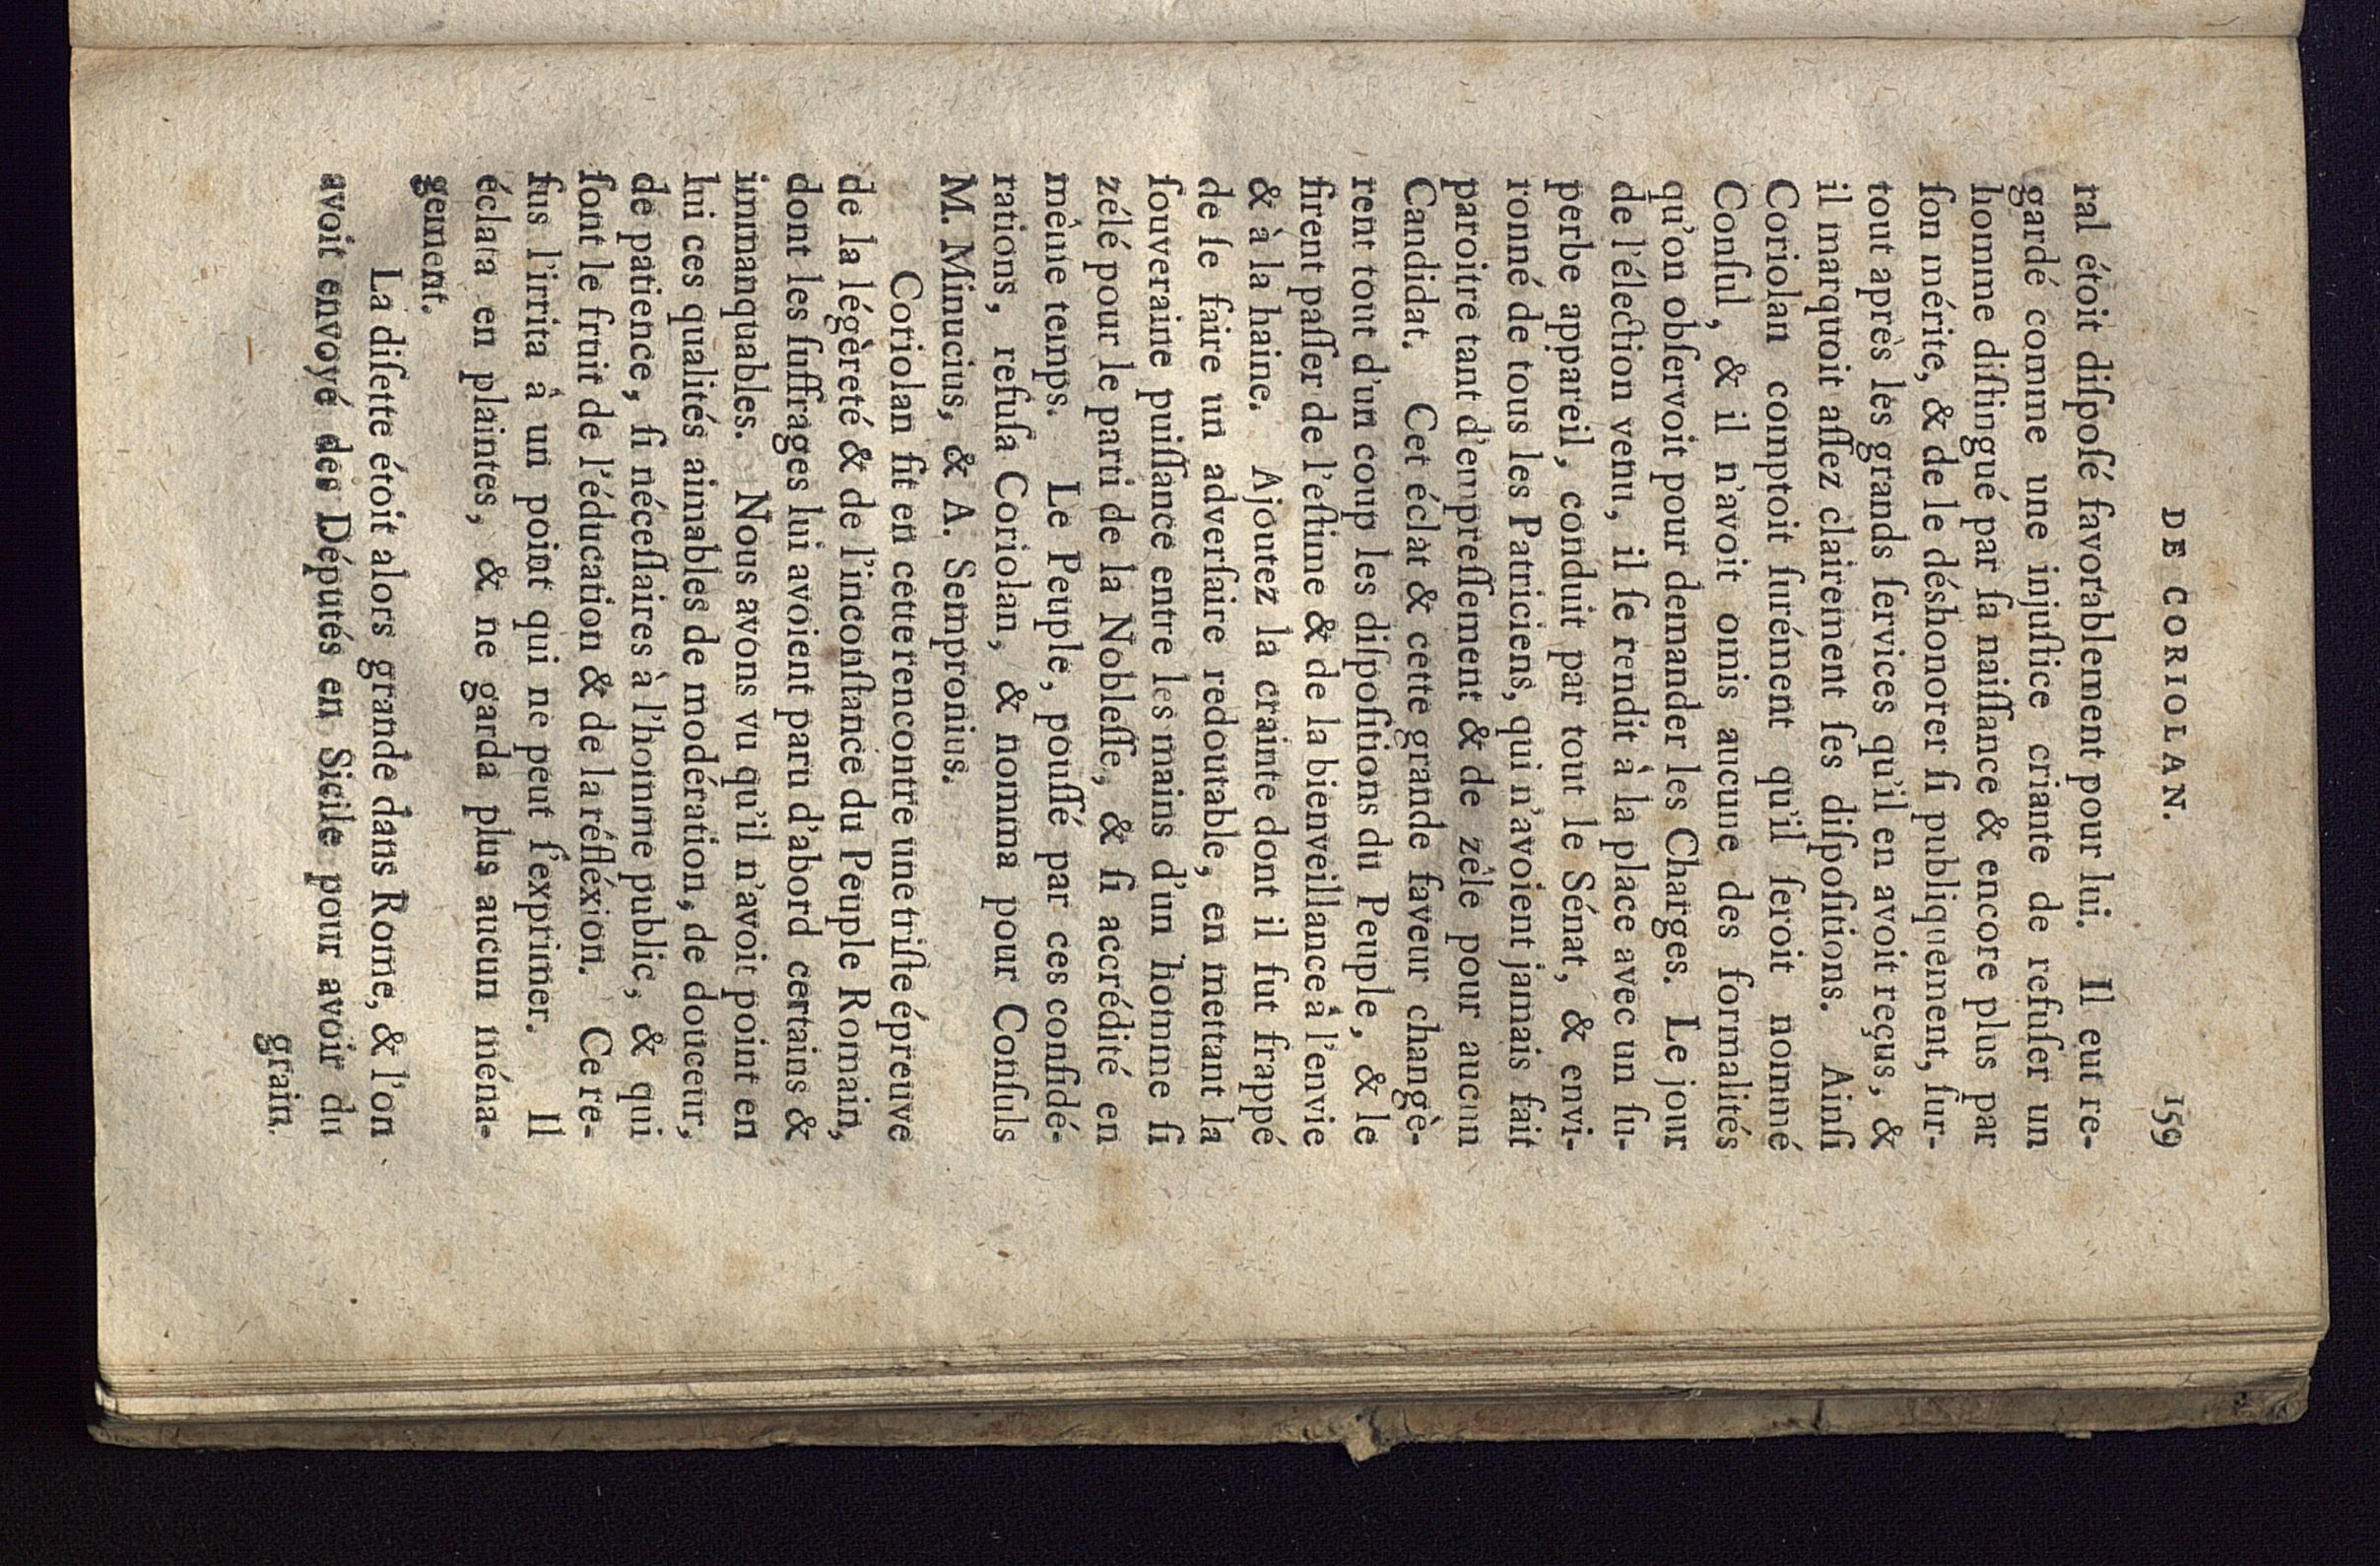 DE CORIOLAN. 159
ral étoit diſpoſé favorablement pour lui. Il eut re-
gardé comme une injuſtice criante de refuſer un
homme diſtingué par ſa naiſſance & encore plus par
ſon mérite, & de le déshonorer ſi publiquement, ſur-
tout après les grands ſervices qu'il en avoit reçus, &
il marquoit aſſez clairement ſes diſpoſitions. Ainſi
Coriolan comptoit ſurément qu'il ſeroit nommé
Conſul, & il n'avoit omis aucune des formalités
qu'on obſervoit pour demander les Charges. Le jour
de l'élection venu, il ſe rendit à la place avec un ſu-
perbe appareil, conduit par tout le Sénat, & envi-
ronné de tous les Patriciens, qui n'avoient jamais fait
paroitre tant d'empreſſement & de zèle pour aucun
Candidat. Cet éclat & cette grande faveur changè-
rent tout d'un coup les diſpoſitions du Peuple, & le
firent paſſer de l'eſtime & de la bienveillance à l'envie
& à la haine. Ajoutez la crainte dont il fut frappé
de ſe faire un adverſaire redoutable, en mettant la
ſouveraine puiſſance entre les mains d'un homme ſi
zélé pour le parti de la Nobleſſe, & ſi accrédité en
mème temps. Le Peuple, pouſſé par ces conſidé-
rations, refuſa Coriolan, & nomma pour Conſuls
M. Minucius, & A. Sempronius.
Coriolan fit en cette rencontre une triſte épreuve
de la légèreté & de l'inconſtance du Peuple Romain,
dont les ſuffrages lui avoient paru d'abord certains &
immanquables. Nous avons vu qu'il n'avoit point en
lui ces qualités aimables de modération, de douceur,
de patience, ſi néceſſaires à l'homme public, & qui
ſont le fruit de l'éducation & de la réfléxion. Ce re-
fus l'irrita à un point qui ne peut ſ'exprimer. Il
éclata en plaintes, & ne garda plus aucun ména-
gement.
La diſette étoit alors grande dans Rome, & l'on
avoit envoyé des Députés en Sicile pour avoir du
grain.